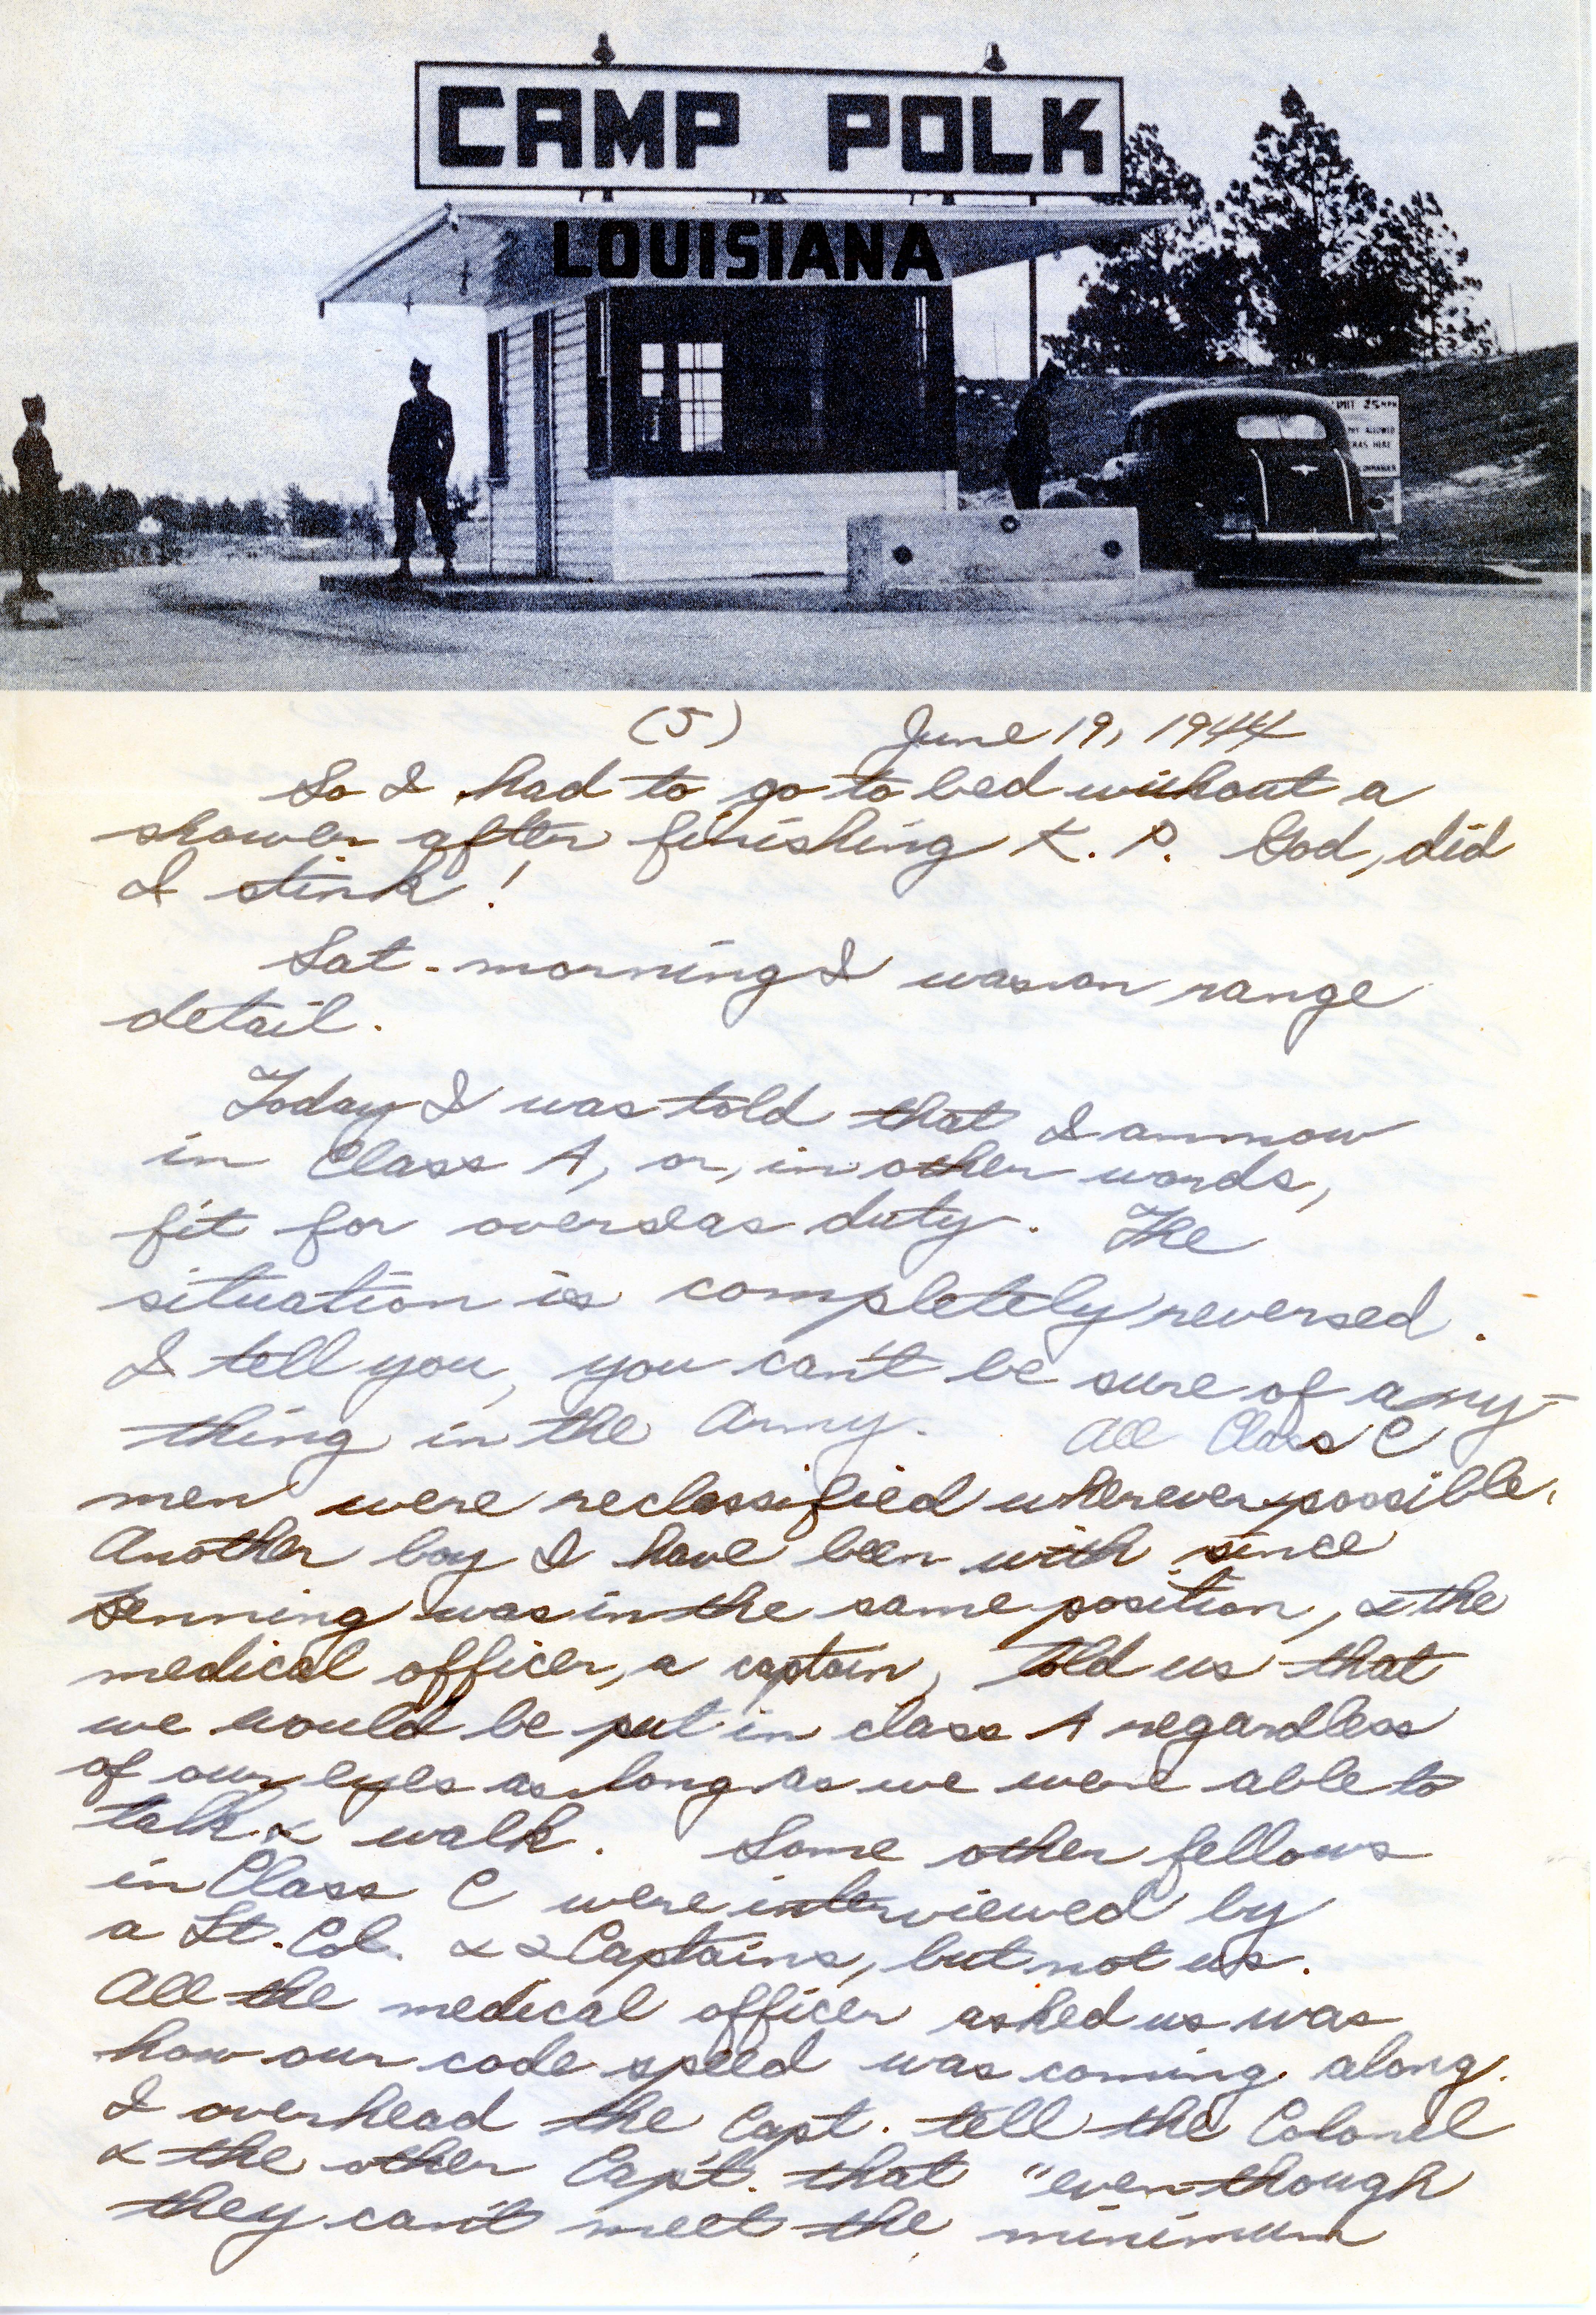 CAMP POLK
LOUISIANA
MIT 25 MPH
ALLOWED
HERE
(5) June 19, 1944
So I had to go to bed without a
shower after finishing K. P. God, did
I stink!
Sat. morning I was on range
detail.
Today I was told that I am now
in Class A, or, in other words,
fit for overseas duty. The
situation is completely reversed.
I tell you, you can't be sure of any-
thing in the Army. All Class C
men were reclassified wherever possible.
Another boy I have been with since
Benning was in the same position, & the
medical officer, a captain, told us that
we would be put in class A regardless
of our eyes as long as we were able to
talk & walk. Some other fellows
in Class C were interviewed by
a Lt. Col. & 2 Captains, but not us.
All the medical officer asked us was
how our code speed was coming along.
I overhead the Capt. tell the Colonel
& the other Cap't. that "even though
they can't meet the minimum